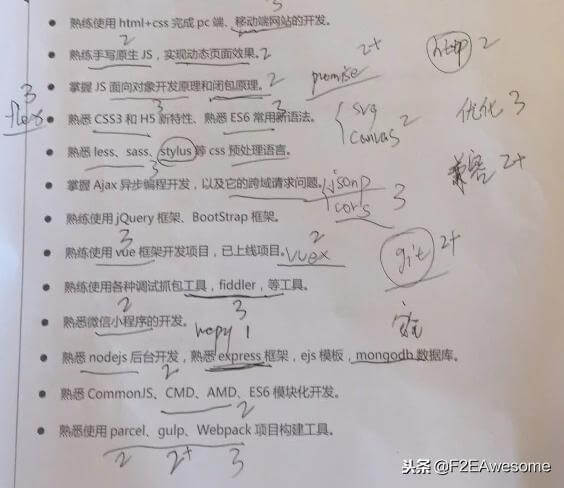 3
熟练使用 html+css 完成 pc 端、移动端网站的开发。
2 2+ http 2
熟练手写原生 JS，实现动态页面效果。2
promise
掌握 JS 面向对象开发原理和闭包原理。2
3 flex 3 3 svg 优化 3
熟悉 CSS3 和 H5 新特性、熟悉 ES6 常用新语法。
canvas 2
熟悉 less、sass、stylus 等 css 预处理语言。
3 兼容 2+
掌握 Ajax 异步编程开发，以及它的跨域请求问题。jsonp
cors 3
熟练使用 jQuery 框架、BootStrap 框架。
3 2 git 2+
熟练使用 vue 框架开发项目，已上线项目。vuex
熟练使用各种调试抓包工具，fiddler，等工具。
2 3
熟悉微信小程序的开发。
1
熟悉 nodejs 后台开发，熟悉 express 框架，ejs 模板，mongodb 数据库。
2 2
熟悉 CommonJS、CMD、AMD、ES6 模块化开发。
2
熟悉使用 parcel、gulp、Webpack 项目构建工具。
2 2+ 3
头条 @F2EAwesome